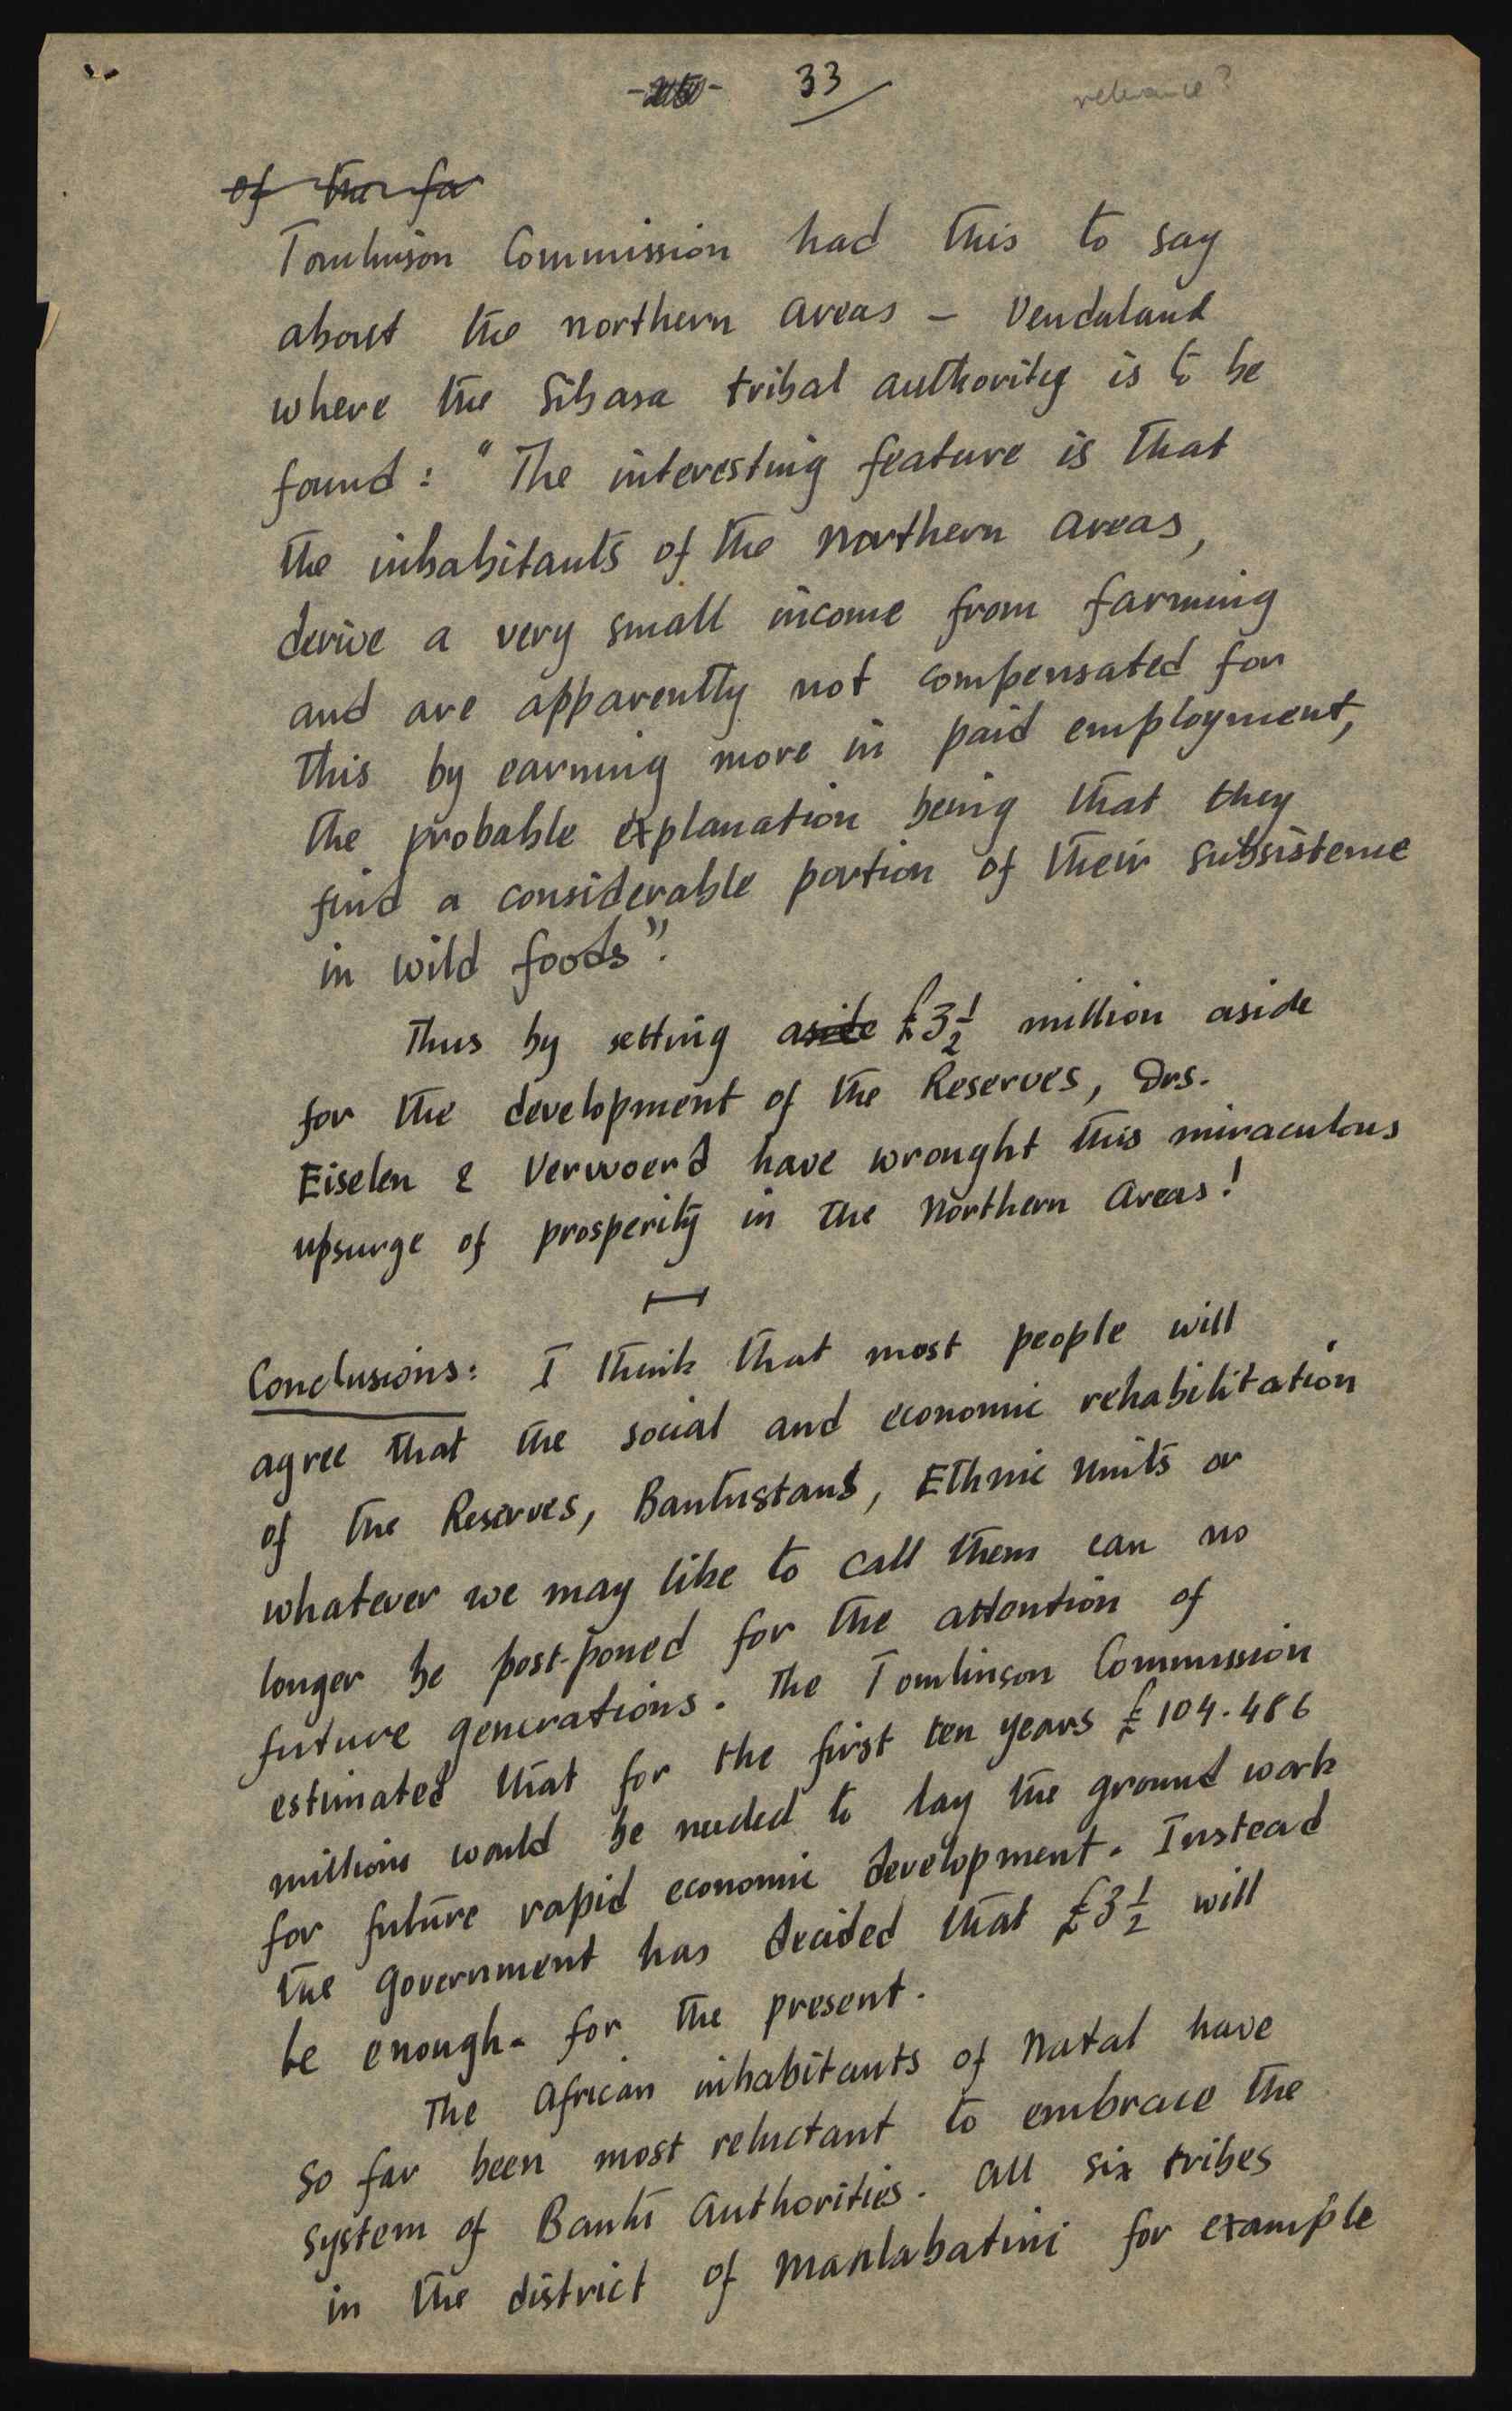 33
relevance?
of the fa
Tomlinson Commission had this to say
about the northern areas – Vendaland
where the Sibasa tribal authority is to be
found: "The interesting feature is that
the inhabitants of the Northern areas,
derive a very small income from farming
and are apparently not compensated for
this by earning more in paid employment,
the probable explanation being that they
find a considerable portion of their subsistence
in wild foods".
Thus by setting aside £3½ million aside
for the development of the Reserves, Drs.
Eiselen & Verwoerd have wrought this miraculous
upsurge of prosperity in the Northern Areas!
Conclusions: I think that most people will
agree that the social and economic rehabilitation
of the Reserves, Bantustans, Ethnic Units or
whatever we may like to call them can no
longer be post-poned for the attention of
future generations. The Tomlinson Commission
estimated that for the first ten years £104.486
millions would be needed to lay the ground work
for future rapid economic development. Instead
the government has decided that £3½ will
be enough. for the present.
The African inhabitants of Natal have
so far been most reluctant to embrace the
system of Bantu Authorities. All six tribes
in the district of Mahlabatini for example